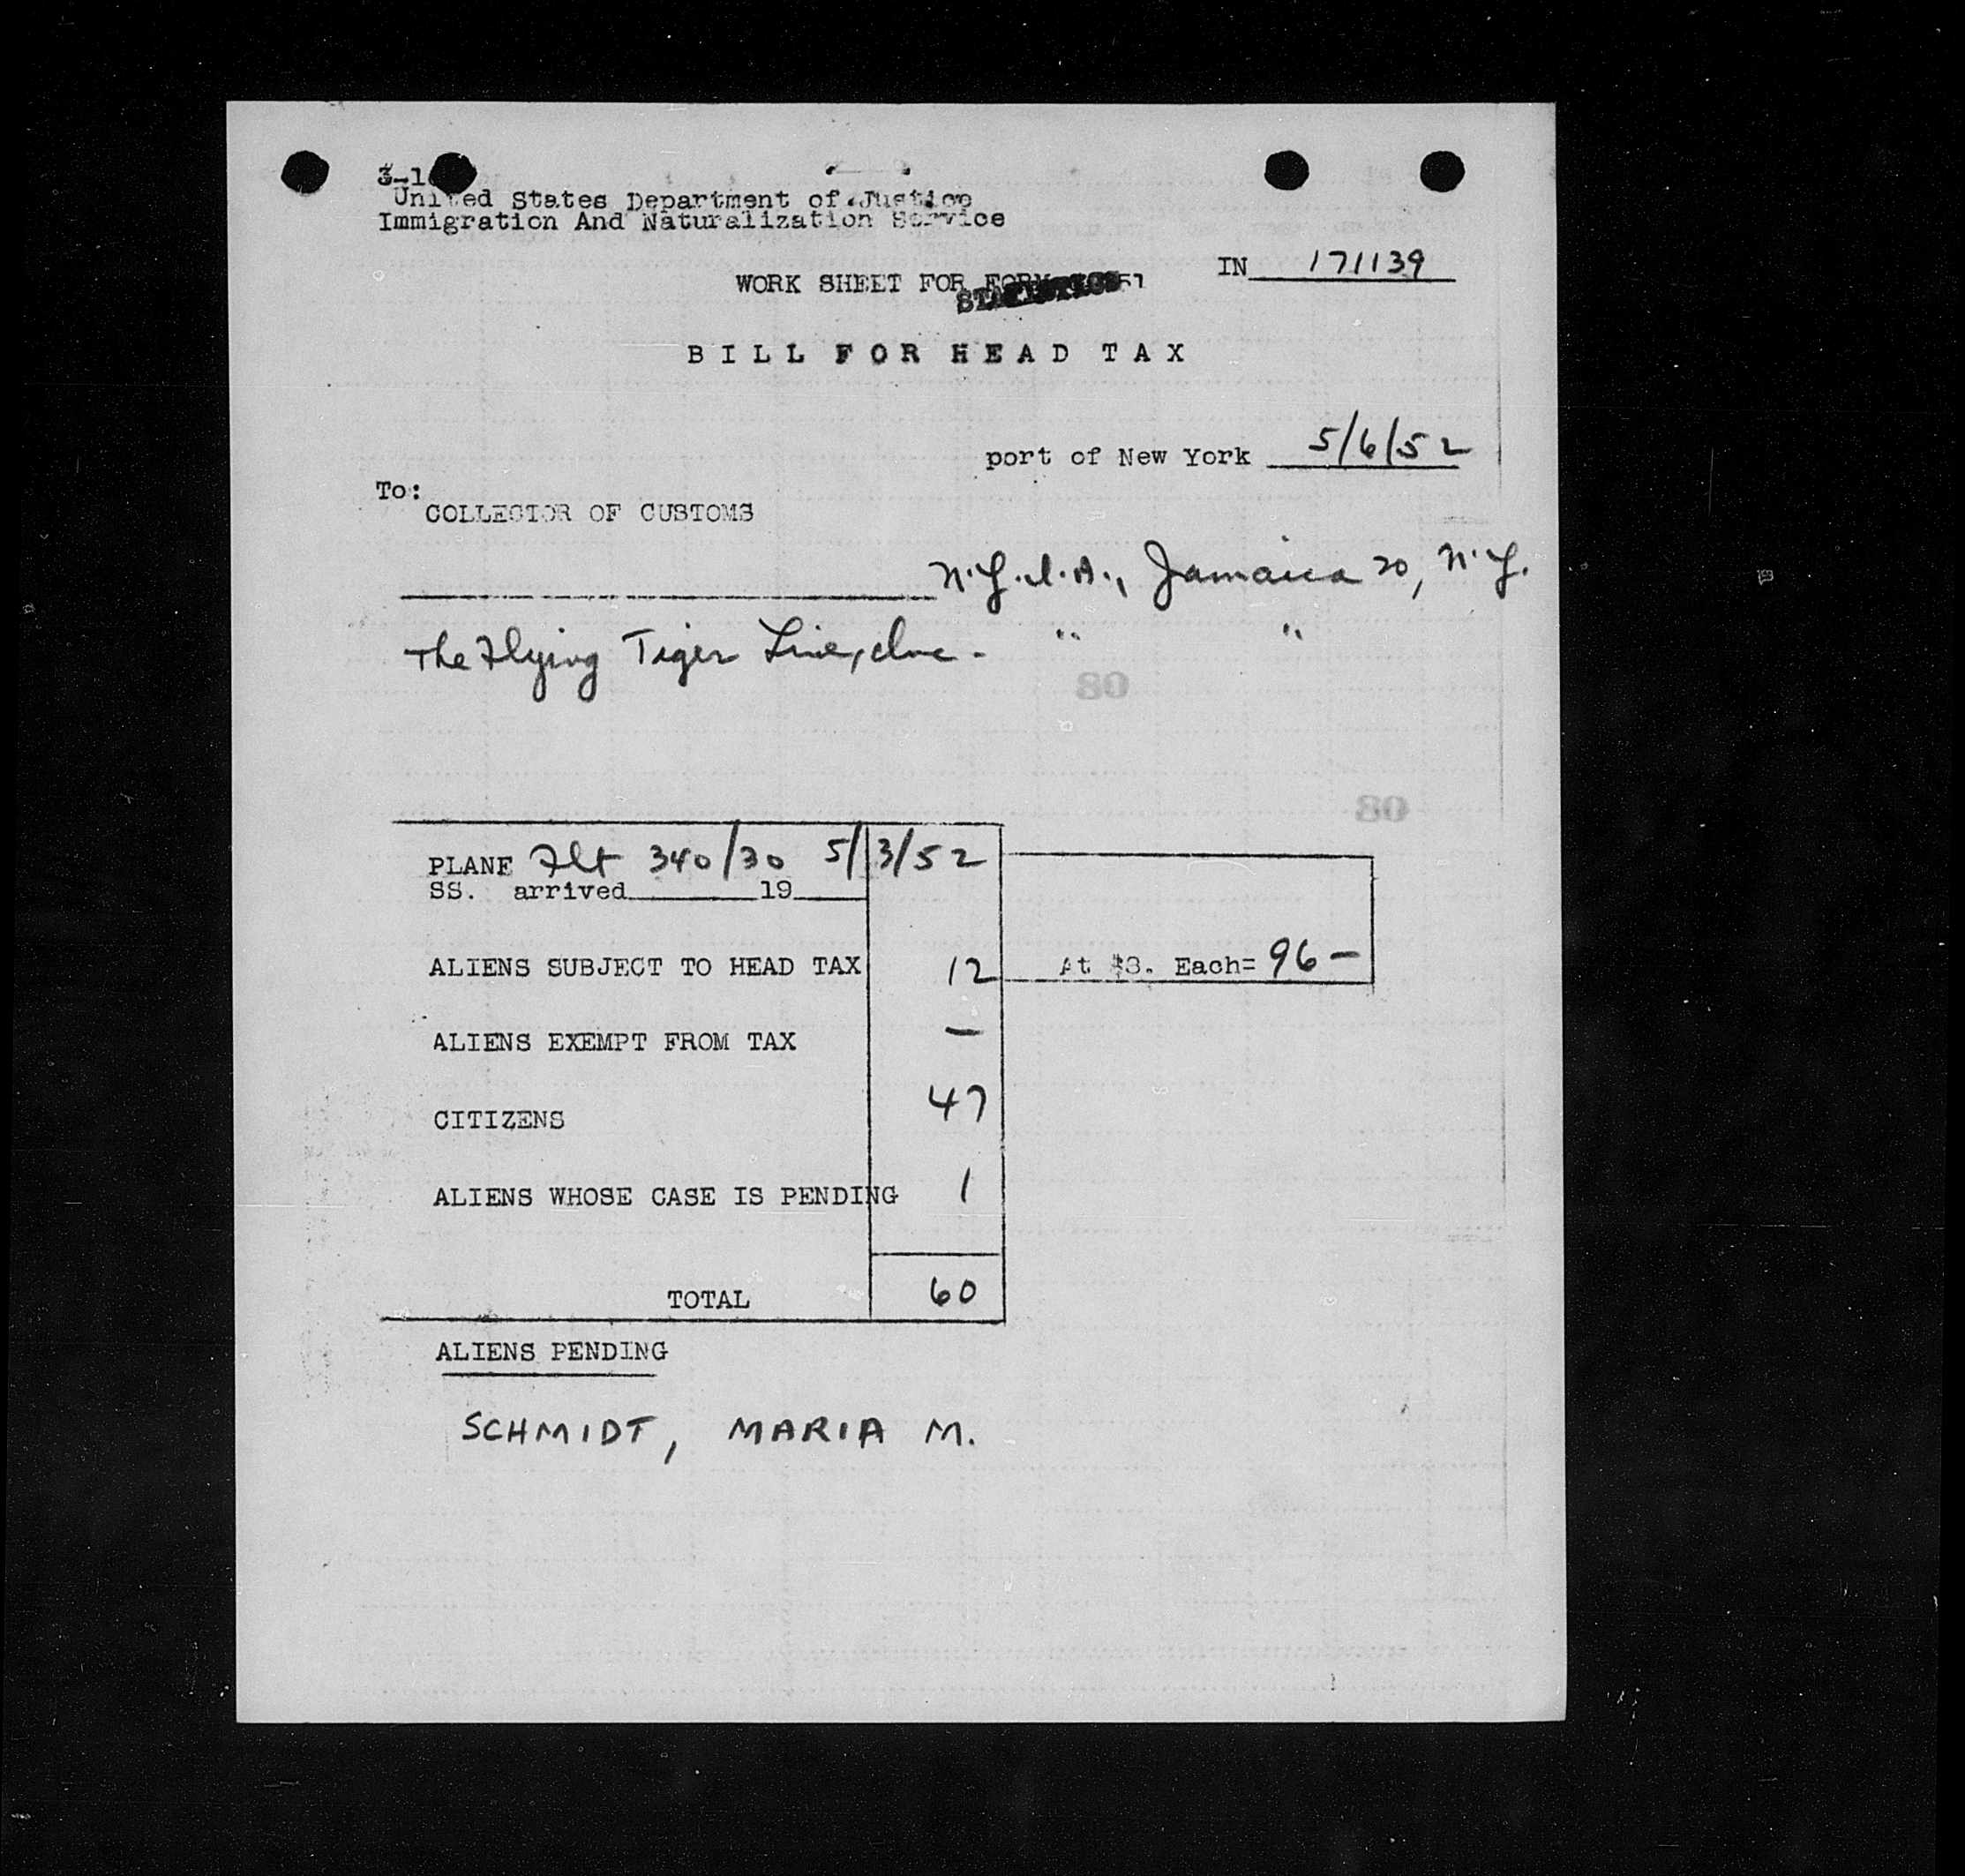 United States Department of Justice
Immigration And Naturalization Service
IN 171139
WORK SHEET FOR
BILL FOR HEAD TAX
port of New York 5/6/52
To:
COLLECTOR OF CUSTOMS
N.Y.I.A., Jamaica 20, N.Y.
The Flying Tiger Line, Inc. " "
80
80
PLANE Flt 340/30 5/3/52
SS. arrived 19
ALIENS SUBJECT TO HEAD TAX 12 At $8. Each= 96 —
ALIENS EXEMPT FROM TAX —
CITIZENS 47
ALIENS WHOSE CASE IS PENDING 1
TOTAL 60
ALIENS PENDING
SCHMIDT, MARIA M.